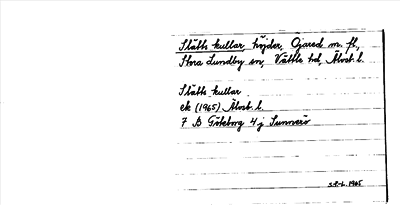 Slätts kullar, höjder, Öjared m. fl.,
Stora Lundby sn, Vättle hd, Älvsb. l.
Slätts kullar
ek (1965) Älvsb. l.
7 B Göteborg 4 j Sunnerö
1965